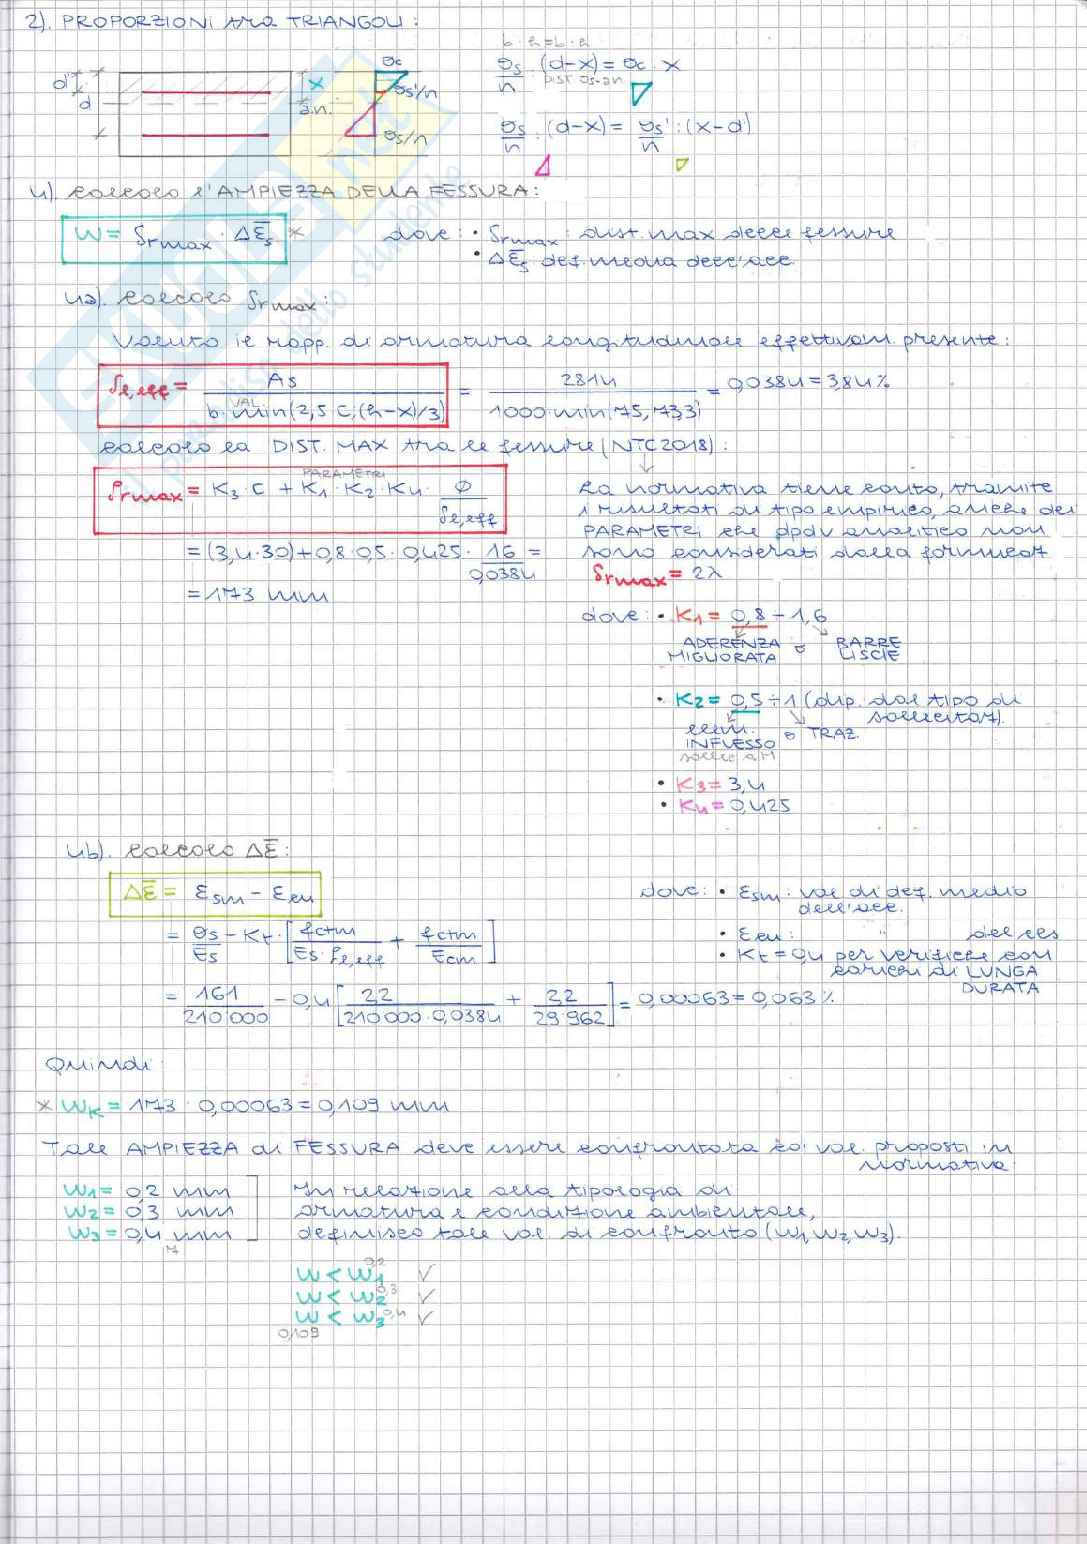 2). PROPORZIONI tra TRIANGOLI:
b·h=b·h
σs/n · (d-x) = σc · x
DIST σs-an
d' d x a.n. σc σs'/n σs/n
σs/n · (d-x) = σs'/n : (x-d')
4). calcolo l'AMPIEZZA DELLA FESSURA:
W = Srmax · Δε̄s *
dove: • Srmax: dist. max delle fessure
• Δε̄s def. media dell'acc.
4a). calcolo Srmax:
Valuto il rapp. di armatura longitudinale effettivam. presente:
ρl,eff = As / b·min(2,5 c; (h-x)/3) = 2814 / 1000·min(75, 73,3) = 0,0384 = 3,84%
VAL
calcolo la DIST. MAX tra le fessure (NTC2018):
PARAMETRI
Srmax = K3·c + K1·K2·K4· Φ/ρl,eff
= (3,4·30)+0,8·0,5·0,425· 16/0,0384 =
= 173 mm
La normativa tiene conto, tramite
i risultati di tipo empirico, anche dei
PARAMETRI che dpdv analitico non
sono considerati dalla formula
Srmax = 2λ
dove: • K1 = 0,8 - 1,6
ADERENZA MIGLIORATA o BARRE LISCIE
• K2 = 0,5 ÷ 1 (dip. dal tipo di
sollecitaz).
elem. INFLESSO o TRAZ.
• K3 = 3,4
• K4 = 0,425
4b). calcolo Δε̄:
Δε̄ = εsm - εcm
dove: • εsm: val di def. medio
dell'acc.
= σs/Es - Kt · [fctm/(Es·ρl,eff) + fctm/Ecm]
• εcm: " del cls
• Kt = 0,4 per verifiche con
carichi di LUNGA
DURATA
= 161/210000 - 0,4 [2,2/(210 000·0,0384) + 2,2/29 962] = 0,00063 = 0,063%
Quindi:
* WK = 173 · 0,00063 = 0,109 mm
Tale AMPIEZZA di FESSURA deve essere confrontata coi val. proposti in
normativa:
W1 = 0,2 mm
W2 = 0,3 mm
W3 = 0,4 mm
In relazione alla tipologia di
armatura e condizione ambientale,
definisco tale val. di confronto (W1, W2, W3).
W < W1 0,2 ✓
W < W2 0,3 ✓
W < W3 0,4 ✓
0,109